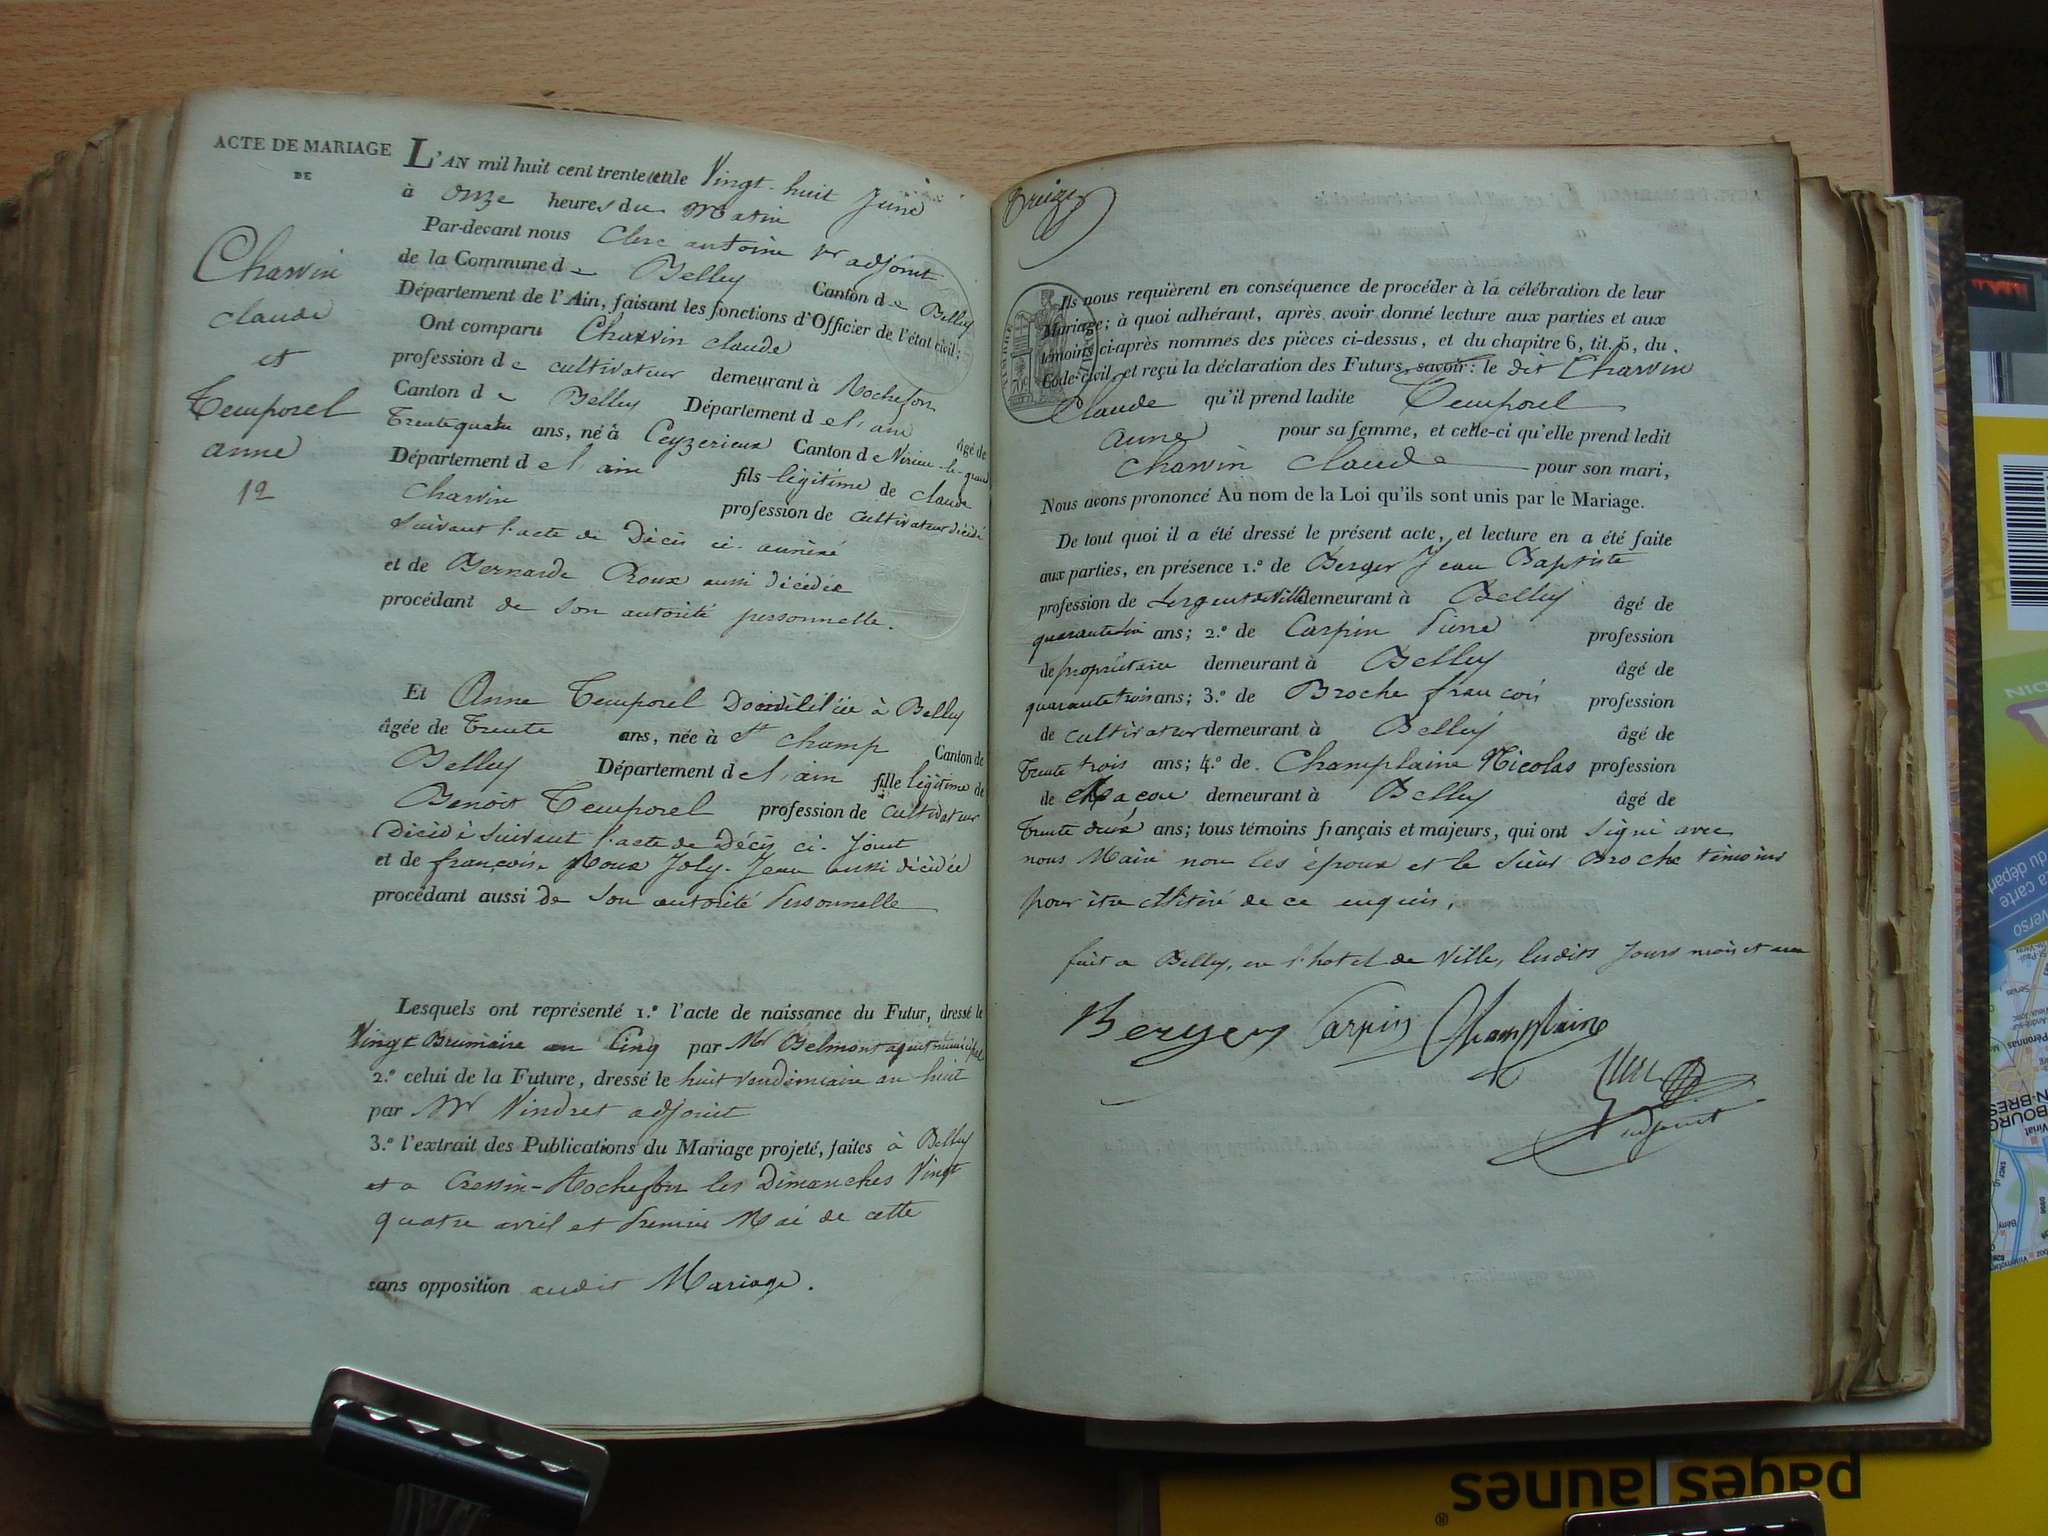 ACTE DE MARIAGE
DE
Charvin
claude
et
Temporel
anne
12
L'AN mil huit cent trente et le Vingt-huit Juin
à onze heures du matin
Par-devant nous Clerc antoine 1er adjoint
de la Commune de Belley Canton de Belley
Département de l'Ain, faisant les fonctions d'Officier de l'état civil;
Ont comparu Charvin claude
profession de cultivateur demeurant à Rochefort
Canton de Belley Département de l'ain âgé de
Trente quatre ans, né à Ceyzerieux Canton de Virieu-le-grand
Département de l'ain fils légitime de claude
Charvin profession de cultivateur décédé
suivant l'acte de Décès ci-annéxé
et de Bernarde Roux aussi décédée
procédant de son autorité personnelle.
Et Anne Temporel Domiciliée à Belley
âgée de trente ans, née à St champ Canton de
Belley Département de l'ain fille légitime de
Benoit Temporel profession de cultivateur
Décédé suivant l'acte de Décès ci-Joint
et de françoise Roux Joly-Jean aussi décédée
procédant aussi de son autorité Personnelle
Lesquels ont représenté 1.º l'acte de naissance du Futur, dressé le
Vingt Brumaire an Cinq par Mr Belmont agent municipal
2.º celui de la Future, dressé le huit vendémiaire an huit
par Mr Vindret adjoint
3.º l'extrait des Publications du Mariage projeté, faites à Belley
et a Cressin-Rochefort les Dimanches Vingt
quatre avril et Premier Mai de cette
sans opposition audit Mariage.
Treize
Ils nous requièrent en conséquence de procéder à la célébration de leur
Mariage; à quoi adhérant, après avoir donné lecture aux parties et aux
témoins ci-après nommés des pièces ci-dessus, et du chapitre 6, tit. 5, du
Code civil, et reçu la déclaration des Futurs, savoir: le dit Charvin
Claude qu'il prend ladite Temporel
anne pour sa femme, et celle-ci qu'elle prend ledit
Charvin Claude pour son mari,
Nous avons prononcé Au nom de la Loi qu'ils sont unis par le Mariage.
De tout quoi il a été dressé le présent acte, et lecture en a été faite
aux parties, en présence 1.º de Berger Jean Baptiste
profession de Sergent de Ville demeurant à Belley âgé de
quarante ans; 2.º de Carpin Pierre profession
de propriétaire demeurant à Belley âgé de
quarante trois ans; 3.º de Broche françois profession
de cultivateur demeurant à Belley âgé de
Trente trois ans; 4.º de Champlaine Nicolas profession
de Maçon demeurant à Belley âgé de
Trente deux ans; tous témoins français et majeurs, qui ont signé avec
nous Maire non les époux et le Sieur Broche témoins
pour être illitéré de ce enquis,
fait a Belley, en l'hotel de Ville, lesdits Jours mois et an
Berger Carpin Champlaine
Clerc
adjoint
pages jaunes